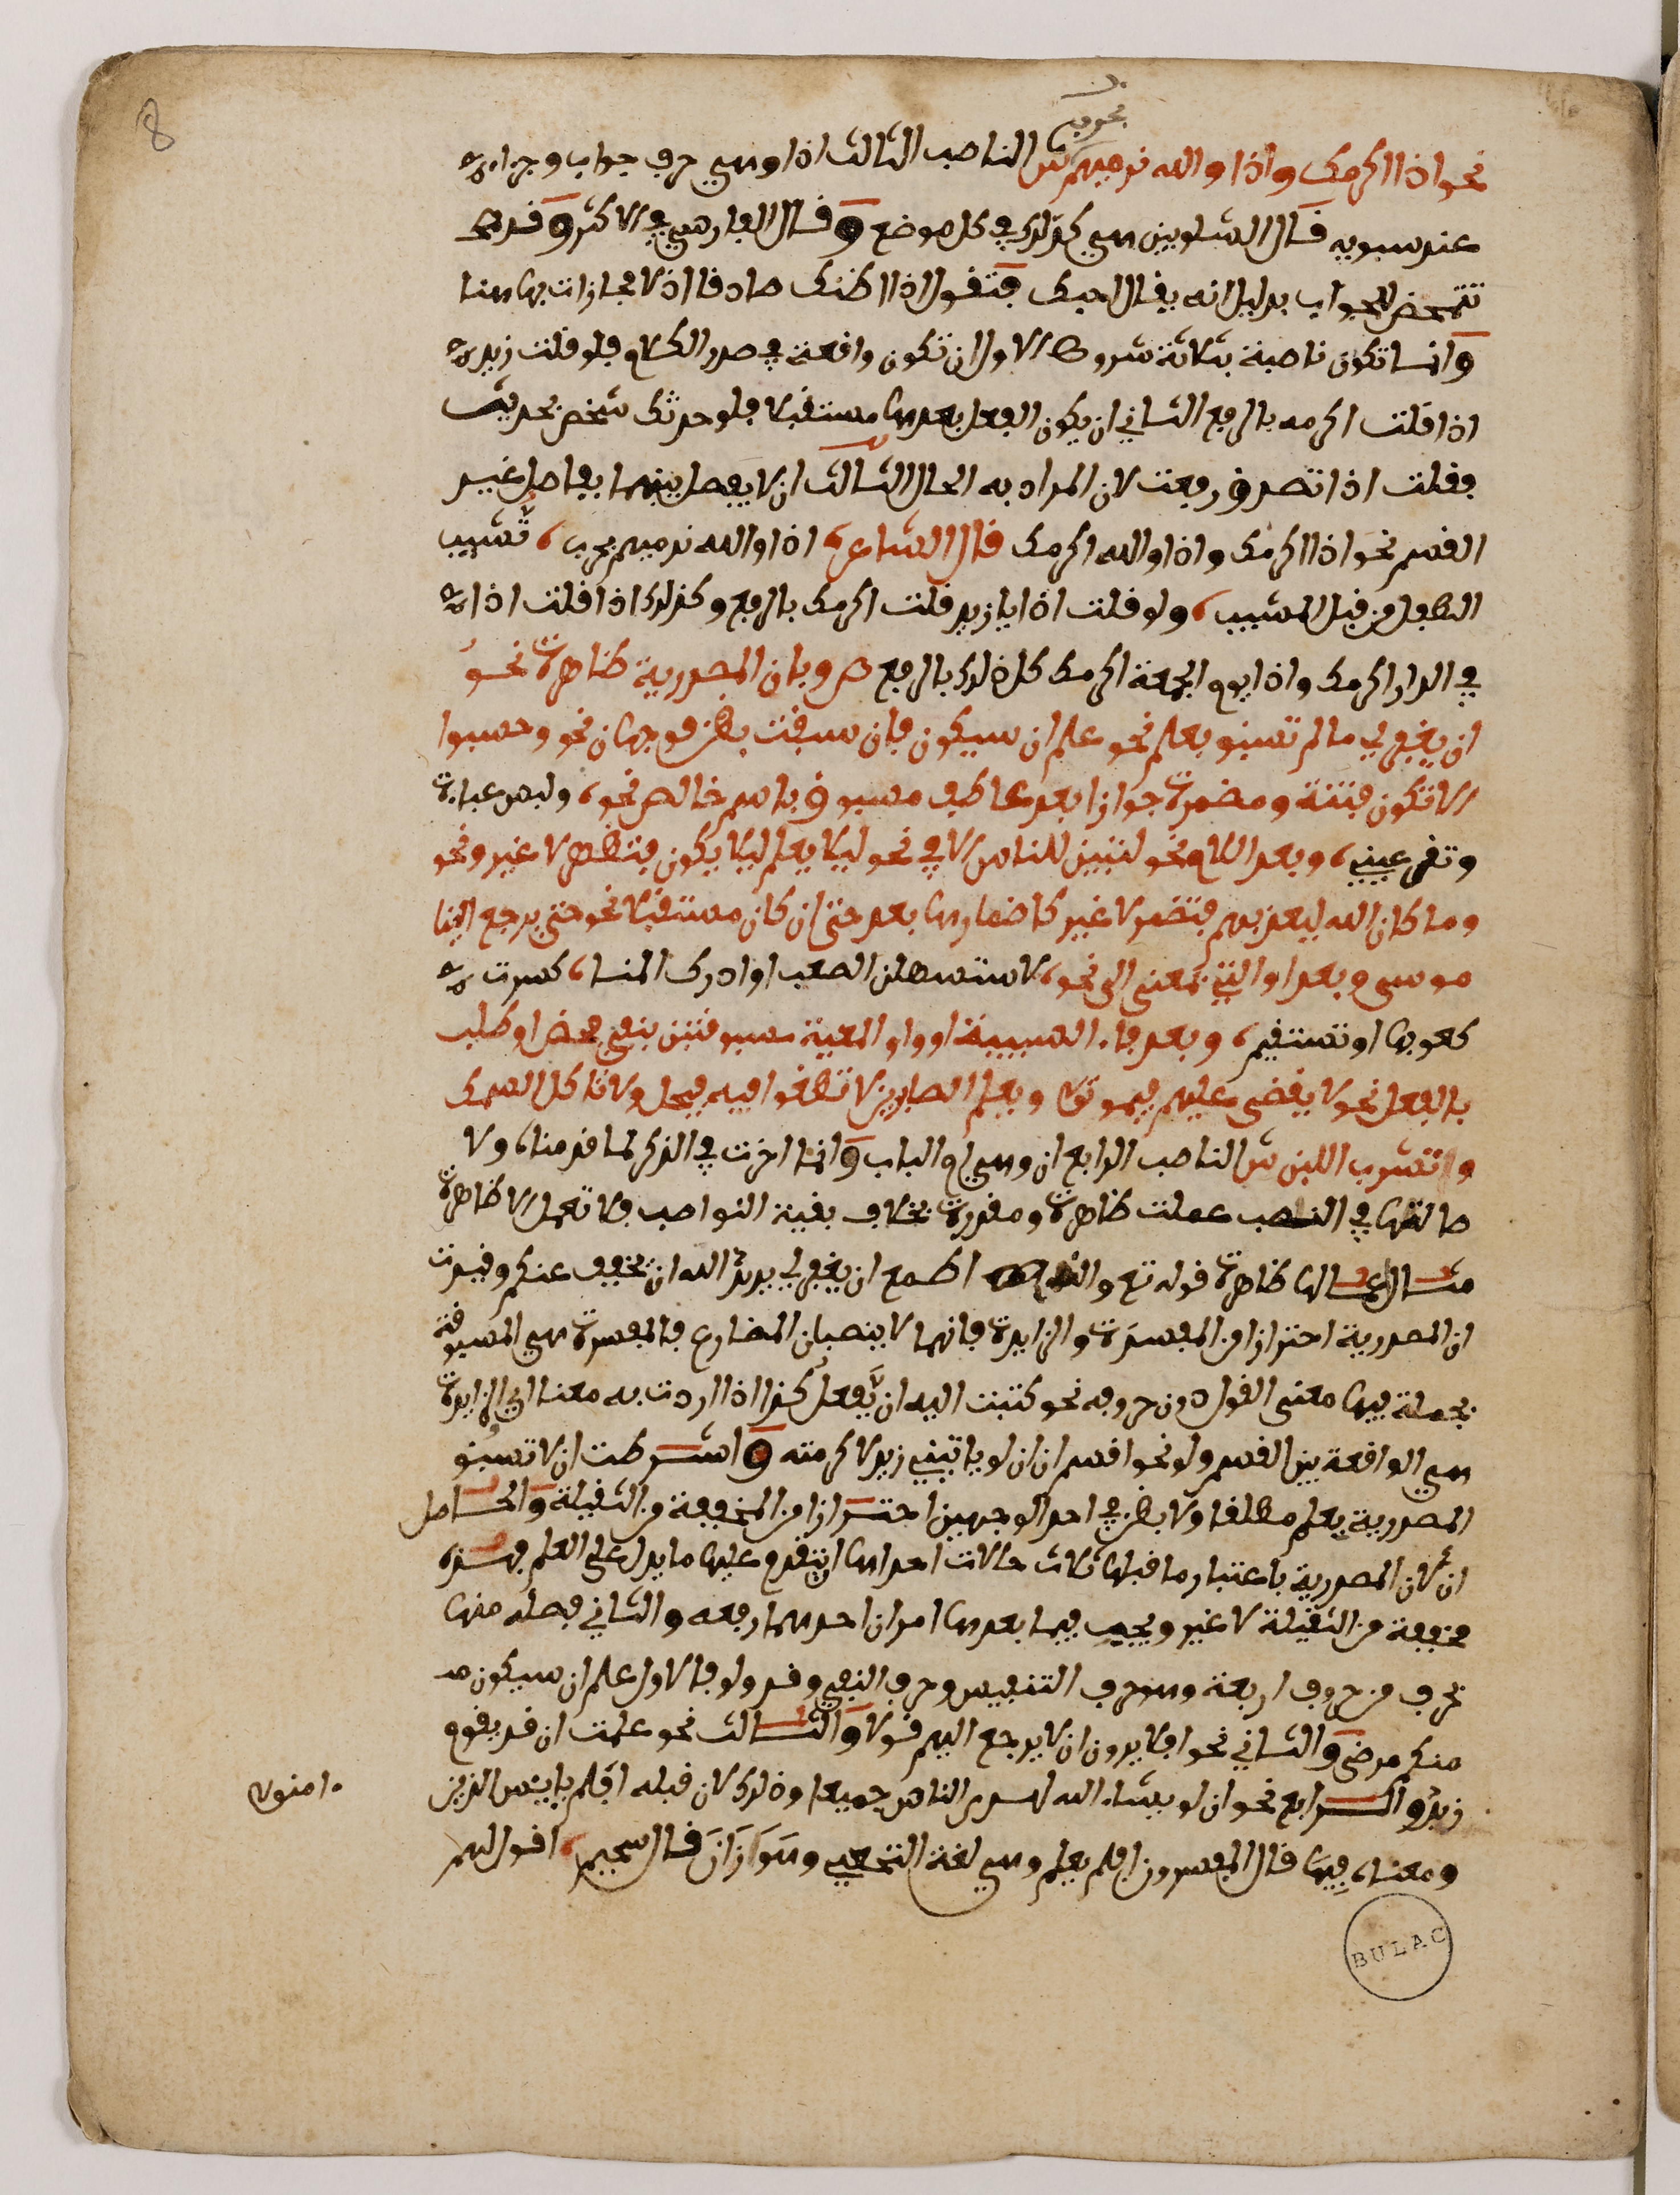 8
بحرب
نحو اذا اكرمك واذا والله نرميهم ش الناصب الثالث اذا وهي حرف جواب وجزاء
عند سيبويه قال الشلوبين هي كذلك في كل موضع وقال الفارسي في الاكثر وقد
تتمحض للجواب بدليل انه يقال احبك فتقول اذا اظنك صادقا اذ لا مجازات بها هنا
وانما تكون ناصبة بثلاثة شروط الاول ان تكون واقعة في صدر الكلام فلو قلت زيد
اذا قلت اكرمه بالرفع الثاني ان يكون الفعل بعدها مستقبلا فلو حدثك شخص بحديث
فقلت اذا تصدق رفعت لان المراد به الحال الثالث ان لا يفصل بينهما بفاصل غير
القسم نحو اذا اكرمك واذا والله اكرمك قال الشاعر اذا والله نرميهم بحرب، تشيب
الطفل من قبل المشيب، ولو قلت اذا يا زيد قلت اكرمك بالرفع وكذلك اذا قلت اذا
في الدار اكرمك واذا يوم الجمعة اكرمك كل ذلك بالرفع ص وبان المصدرية ظاهرة نحو
ان يغفر لي ما لم تسبق بعلم نحو علم ان سيكون فان سبقت بظن فوجهان نحو وحسبوا
الا تكون فتنة ومضمرة جوازا بعد عاطف مسبوق باسم خالص نحو، ولبس عباءة
وتقر عيني، وبعد اللام نحو لتبين للناس الا في نحو ليلا يعلم ليلا يكون فتظهر لا غير ونحو
وما كان الله ليعذبهم فتضمر لا غير كاضمارها بعد حتى ان كان مستقبلا نحو حتى يرجع الينا
موسى وبعد او التي بمعنى الى نحو، لاستسهلن الصعب او ادرك المنا، كسرت
كعوبها او تستقيم، وبعد فاء السببية او واو المعية مسبوقتين بنفي محض او طلب
بالفعل نحو لا يقضى عليهم فيموتوا ويعلم الصابرين لا تطغوا فيه فيحل ولا تاكل السمك
وتشرب اللبن ش الناصب الرابع ان وهي ام الباب وانما اخرت في الذكر لما قدمنا، ولا
صالتها في النصب عملت ظاهرة ومقدرة بخلاف بقية النواصب فلا تعمل الا ظاهرة
مثال اعمالها ظاهرة قوله تع والذي اطمع ان يغفر لي يريد الله ان يخفف عنكم وقيدت
ان المصدرية احترازا من المفسرة والزايدة فانهما لا ينصبان المضارع فالمفسرة هي المسبوقة
بجملة فيها معنى القول دون حروفه نحو كتبت اليه ان يفعل كذا اذا اردت به معنا اي والزايدة
هي الواقعة بين القسم ولو نحو اقسم ان ان لو ياتيني زيد لاكرمته واشترطت ان لا تسبق
المصدرية بعلم مطلقا ولا بظن في احد الوجهين احترازا من المخففة من الثقيلة والحاصل
ان لان المصدرية باعتبار ما قبلها ثلاث حالات احداها ان يتقدم عليها ما يدل على العلم فهذه
مخففة من الثقيلة لا غير ويجب فيما بعدها امران احدهما رفعه والثاني فصله منها
بحرف من حروف اربعة وهو حرف التنفيس وحرف النفي وقد ولو فالاول علم ان سيكون
منكم مرضى والثاني نحو افلا يرون ان لا يرجع اليهم قولا والثالث نحو علمت ان قد يقوم
زيد والرابع نحو ان لو يشاء الله لهدى الناس جميعا وذلك لان قبله افلم يايئس الذين
ءامنوا
ومعناه فيها قال المفسرون افلم يعلم وهي لغة النخع وهوازن قال سحيم، اقول لهم
BULAC